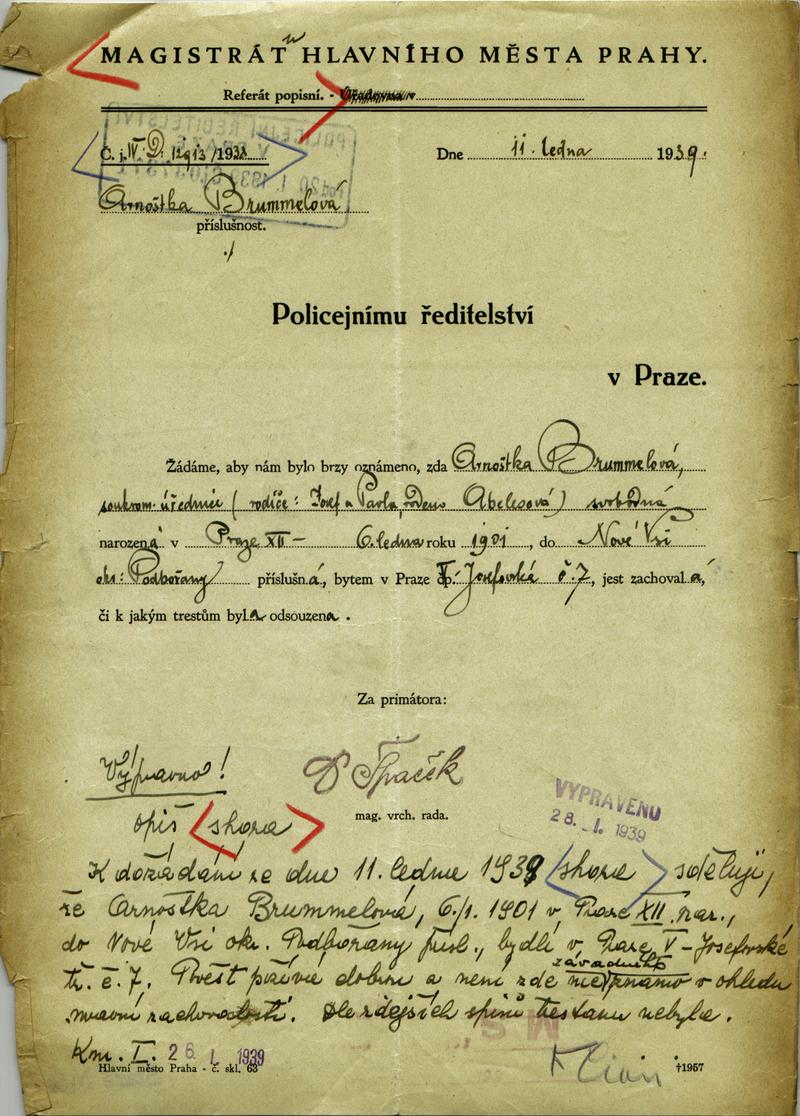 MAGISTRÁT HLAVNÍHO MĚSTA PRAHY.
Referát popisní. -
Č. j. IV. D. /1938
Dne 11. ledna 1939.
Arnoštka Brummelová
příslušnost.
Policejnímu ředitelství
v Praze.
Žádáme, aby nám bylo brzy oznámeno, zda Arnoštka Brummelová,
soukrom. úřednice (rodiče: Josef a Pavla, rozená Abelesová) svobodná
narozená v Praze XII - 6. ledna roku 1901, do Nové Vsi
okr. Podbořany příslušná, bytem v Praze Josefovská č. 7, jest zachovalá,
či k jakým trestům byla odsouzena.
Za primátora:
Výpravno!
Dr Špaček
mag. vrch. rada.
VYPRAVENO
28. I. 1939
opis shora
K dožádání ze dne 11. ledna 1939 shora sděluji,
že Arnoštka Brummelová, 6./1. 1901 v Praze XII. nar.,
do Nové Vsi okr. Podbořany přísl., bydlí v Praze V - Josefovská
tř. č. 7. Pověst požívá dobrou a není zde závadného v ohledu
mravní zachovalosti. Dle zdejších spisů trestána nebyla.
Km. I. 26. I. 1939
Hlavní město Praha - č. skl. 63
†1957